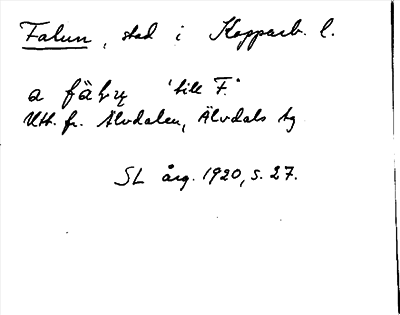 Falun, stad i Kopparb. l.
a 'till F.'
Utt. fr. Älvdalen, Älvdals tg
SL årg. 1920, s. 27.